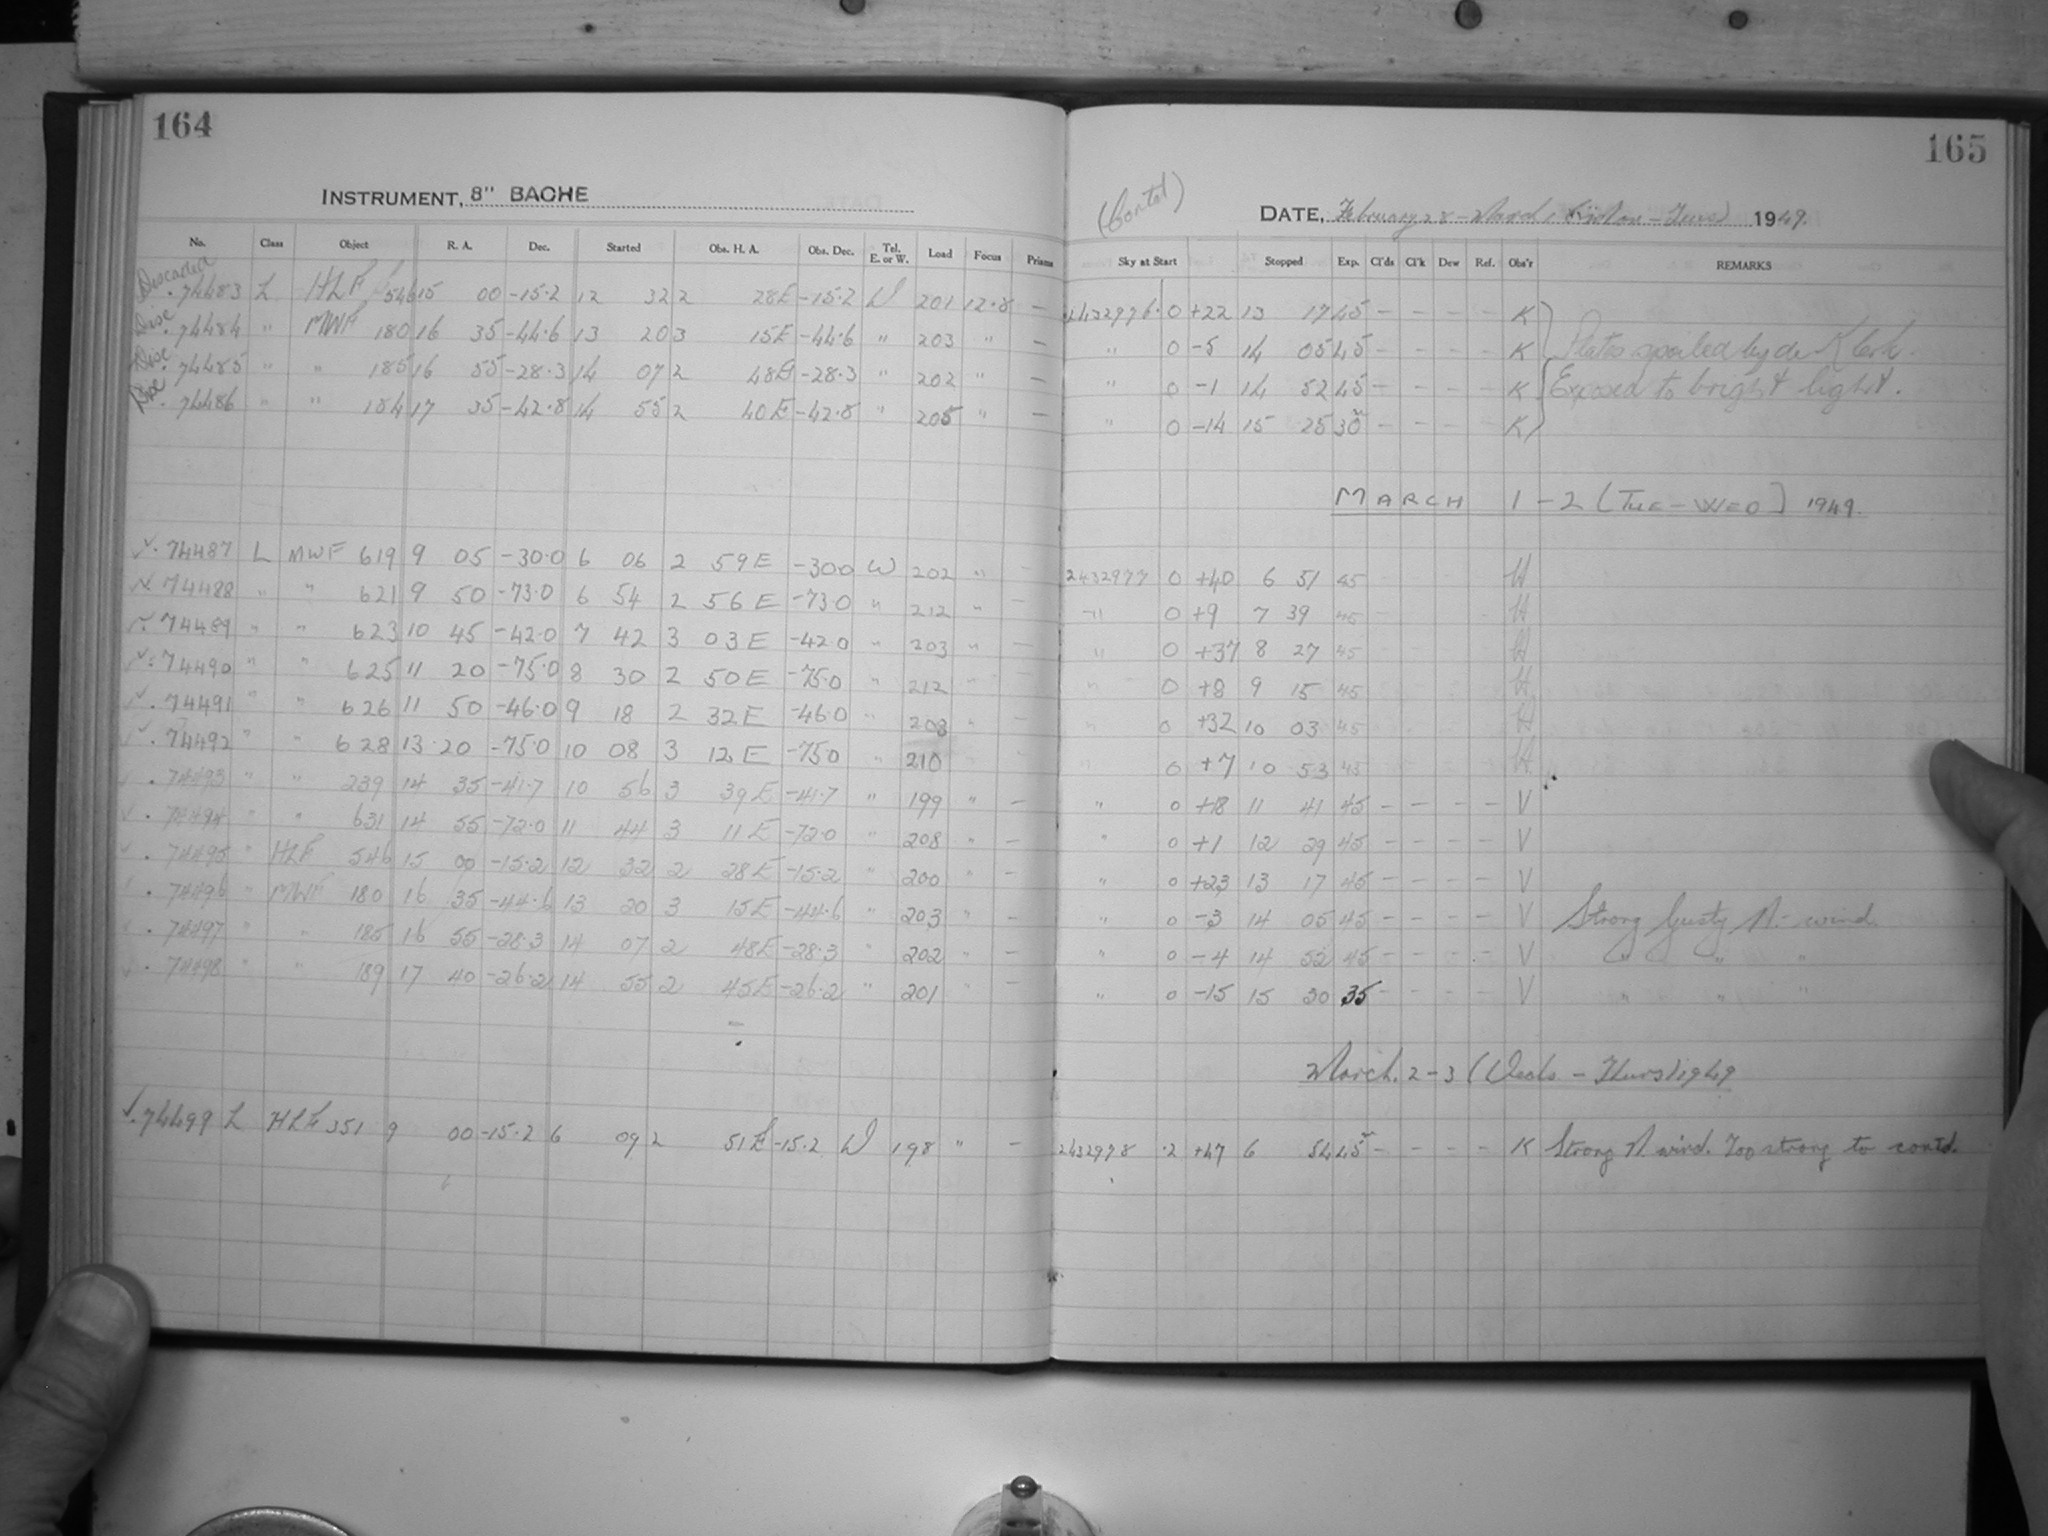 164
INSTRUMENT, 8" BACHE
No. Class Object R. A. Dec. Started Obs. H. A. Obs. Dec. Tel. E. or W. Load Focus Prisms
Discarded . 74483 L HLF 546 15 00 -15.2 12 32 2 28E -15.2 W 201 12.8 —
Disc . 74484 " MWF 180 16 35 -44.6 13 20 3 15E -44.6 " 203 " —
Disc. . 74485 " " 185 16 55 -28.3 14 07 2 48E -28.3 " 202 " —
Disc . 74486 " " 184 17 35 -42.8 14 55 2 40E -42.8 " 205 " —
✓. 74487 L MWF 619 9 05 -30.0 6 06 2 59E -30.0 W 202 " —
✓. 74488 " " 621 9 50 -73.0 6 54 2 56E -73.0 " 212 " —
✓. 74489 " " 623 10 45 -42.0 7 42 3 03E -42.0 " 203 " —
✓. 74490 " " 625 11 20 -75.0 8 30 2 50E -75.0 " 212 " —
✓. 74491 " " 626 11 50 -46.0 9 18 2 32E -46.0 " 203 " —
✓. 74492 " " 628 13 20 -75.0 10 08 3 12E -75.0 " 210 "
✓. 74493 " " 239 14 35 -41.7 10 56 3 39E -41.7 " 199 " —
✓. 74494 " " 631 14 55 -72.0 11 44 3 11E -72.0 " 208 " —
✓. 74495 " HLF 546 15 00 -15.2 12 32 2 28E -15.2 " 200 " —
✓. 74496 " MWF 180 16 35 -44.6 13 20 3 15E -44.6 " 203 " —
✓. 74497 " " 185 16 55 -28.3 14 07 2 48E -28.3 " 202 " —
✓. 74498 " " 189 17 40 -26.2 14 55 2 45E -26.2 " 201 " —
✓. 74499 L HLF 351 9 00 -15.2 6 09 2 51E -15.2 W 198 " —
165
(Contd)
DATE, February 28 - March 1 (Mon - Tues) 1949.
Sky at Start Stopped Exp. Cl'ds Cl'k Dew Ref. Obs'r REMARKS
2432976. 0 +22 13 17 45 — — — — K
" 0 -5 14 05 45 — — — — K Plates spoiled by de Klerk.
" 0 -1 14 52 45 — — — — K Exposed to bright light.
" 0 -14 15 25 30 — — — — K
MARCH 1-2 (TUE-WED) 1949.
2432977 0 +40 6 51 45 H
" 0 +9 7 39 45 H
" 0 +37 8 27 45 H
" 0 +8 9 15 45 H
" 0 +32 10 03 45 H
" 0 +7 10 53 45 H
" 0 +18 11 41 45 — — — — V
" 0 +1 12 29 45 — — — — V
" 0 +23 13 17 45 — — — — V
" 0 -3 14 05 45 — — — — V Strong Gusty N. wind
" 0 -4 14 52 45 — — — — V " " "
" 0 -15 15 30 35 — — — — V " " "
March. 2-3 (Weds - Thurs) 1949
2432978 .2 +47 6 54 45 — — — — K Strong N wind. Too strong to contd.